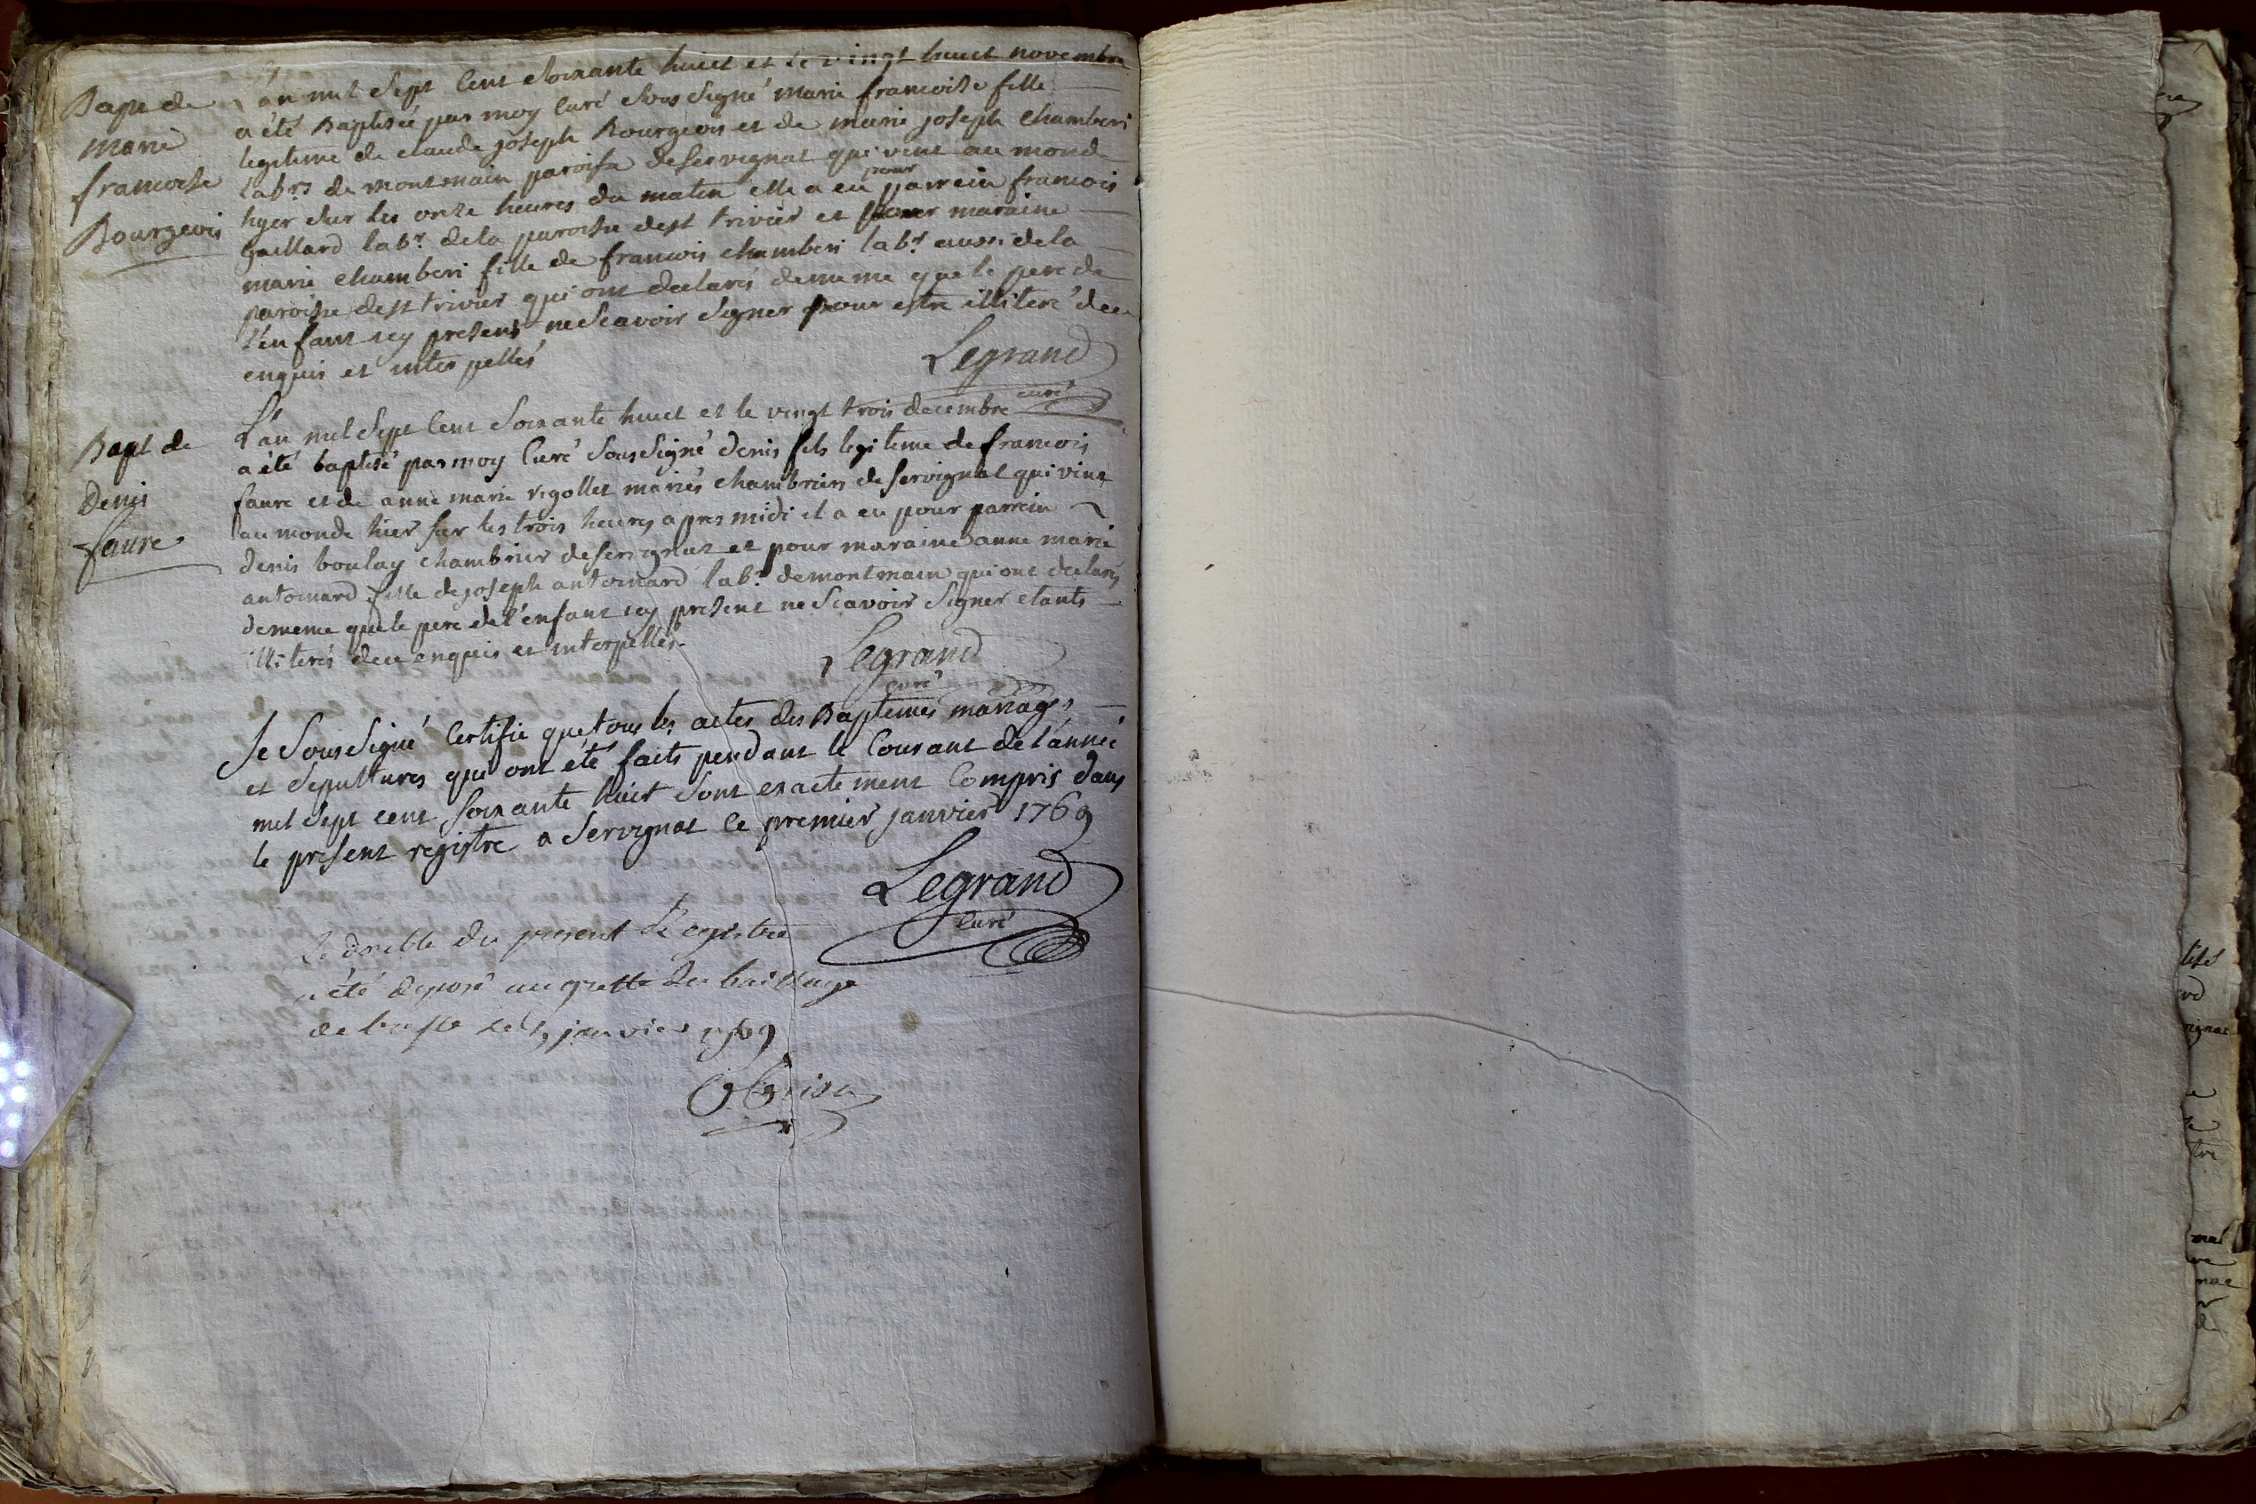 Bapt de
marie
francoise
Bourgeois
L'an mil sept Cent soixante huict et le vingt huict novembre
a été Baptisée par moy Curé sous signé marie francoise fille
legiteme de claude joseph Bourgeois et de marie joseph chamberi
labrs de montmain paroisse de servignat qui vint au monde
hyer sur les onze heures du matin elle a eu pour parrein francois
Gaillard labr. de la paroisse de st trivier et pour maraine
marie chamberi fille de francois chamberi labr aussi de la
paroisse de st trivier qui ont declarés de meme que le pere de
l'enfant icy present ne scavoir signer pour estre illiteré deu
enquis et interpellés
Legrand
curé
Bapt de
Denis
faure
L'an mil sept Cent Soixante huict et le vingt trois decembre
a été baptisé par moy Curé Sous signé denis fils legiteme de francois
faure et de anne marie rigollet mariés chambriers de servignat qui vint
au monde hier sur les trois heures apres midi il a eu pour parrein
denis boulay chambrier de servignat et pour maraine anne marie
antoinard fille de joseph antoinard labr. de montmain qui ont declarés
de meme que le pere de l'enfant icy present ne scavoir signer etants
illiterés deu enquis et interpellés.
Legrand
curé
Je Sous signé Certifie que tous les actes des Baptemes mariages
et sepultures qui ont été faits pendant le Courant de l'année
mil sept cent soixante huit sont exactement Compris dans
le present registre a Servignat ce premier janvier 1769
Legrand
Curé
Le double du present Registre
a été deposé au greffe du bailliage
de bresse le janvier 1769